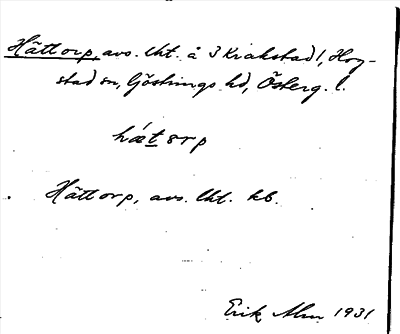 Hättorp, avs. lht. å 3 Krakstad 1, Hog-
stad sn, Göstrings hd, Österg. l.
hǽt orp
Hättorp, avs. lht. kb.
Erik Alm 1931